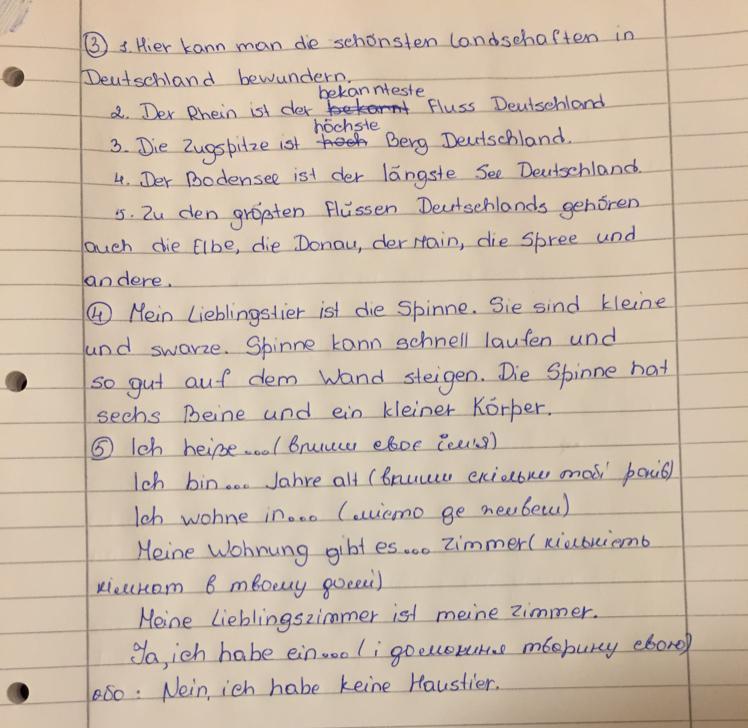 ③ 1. Hier kann man die schönsten Landschaften in
Deutschland bewundern.
bekannteste
2. Der Rhein ist der bekannt Fluss Deutschland
höchste
3. Die Zugspitze ist hoch Berg Deutschland.
4. Der Bodensee ist der längste See Deutschland.
5. Zu den größten Flüssen Deutschlands gehören
auch die Elbe, die Donau, der Main, die Spree und
andere.
④ Mein Lieblingstier ist die Spinne. Sie sind kleine
und swarze. Spinne kann schnell laufen und
so gut auf dem Wand steigen. Die Spinne hat
sechs Beine und ein kleiner Körper.
⑤ Ich heiße...(впиши своє ім'я)
Ich bin... Jahre alt (впиши скільки тобі років)
Ich wohne in... (місто де живеш)
Meine Wohnung gibt es... Zimmer (кількість
кімнат в твоєму домі)
Meine Lieblingszimmer ist meine Zimmer.
Ja, ich habe ein... (і домашню тварину свою)
або: Nein, ich habe keine Haustier.